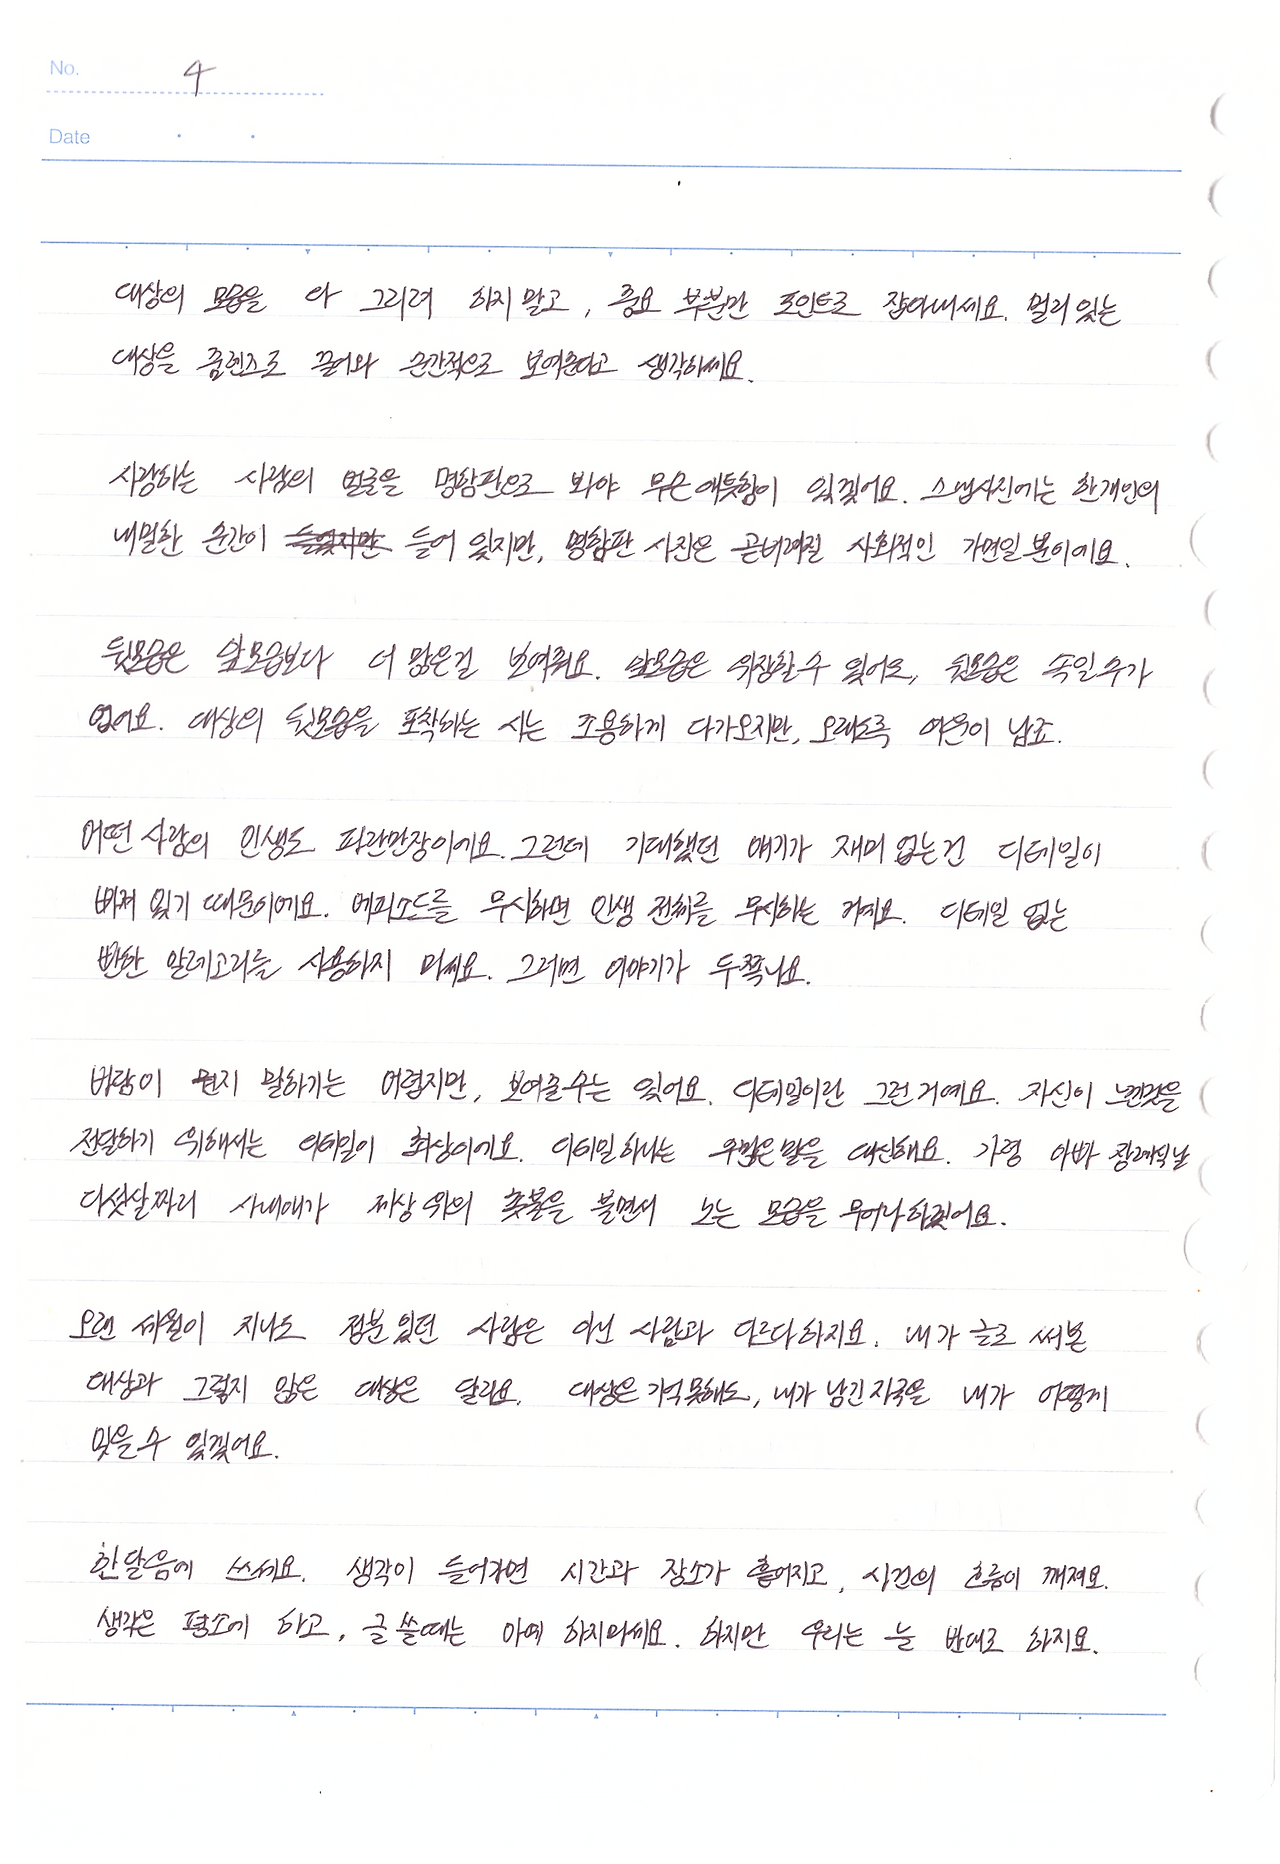 No. 4
Date . .
대상의 모습을 다 그리려 하지 말고, 중요 부분만 포인트로 잡아내세요. 멀리 있는
대상을 줌렌즈로 끌어와 순간적으로 보여준다고 생각하세요.
사랑하는 사람의 얼굴을 명함판으로 봐야 무슨 애틋함이 있겠어요. 스냅사진에는 한 개인의
내밀한 순간이 들어 있지만, 명함판 사진은 곧 버려질 사회적인 가면일 뿐이에요.
뒷모습은 앞모습보다 더 많은걸 보여줘요. 앞모습은 위장할 수 있어도, 뒷모습은 속일 수가
없어요. 대상의 뒷모습을 포착하는 시는 조용하게 다가오지만, 오래도록 여운이 남죠.
어떤 사람의 인생도 파란만장이에요. 그런데 기대했던 얘기가 재미 없는건 디테일이
빠져 있기 때문이에요. 에피소드를 무시하면 인생 전체를 무시하는 거예요. 디테일 없는
뻔한 알레고리를 사용하지 마세요. 그러면 이야기가 두쪽나요.
바람이 뭔지 말하기는 어렵지만, 보여줄 수는 있어요. 디테일이란 그런 거예요. 자신이 느낀것을
전달하기 위해서는 디테일이 최상이에요. 디테일 하나는 수많은 말을 대신해요. 가령 아빠 장례식날
다섯살짜리 사내애가 제상 위의 촛불을 불면서 노는 모습을 무어나 하겠어요.
오랜 세월이 지나도 접분 있던 사람은 아닌 사람과 다르다 하지요. 내가 글로 써본
대상과 그렇지 않은 대상은 달라요. 대상은 기억 못해도, 내가 남긴 자국을 내가 어떻게
잊을 수 있겠어요.
한달음에 쓰세요. 생각이 들어가면 시간과 장소가 흩어지고, 사건의 흐름이 깨져요.
생각은 평소에 하고, 글 쓸 때는 아예 하지 마세요. 하지만 우리는 늘 반대로 하지요.